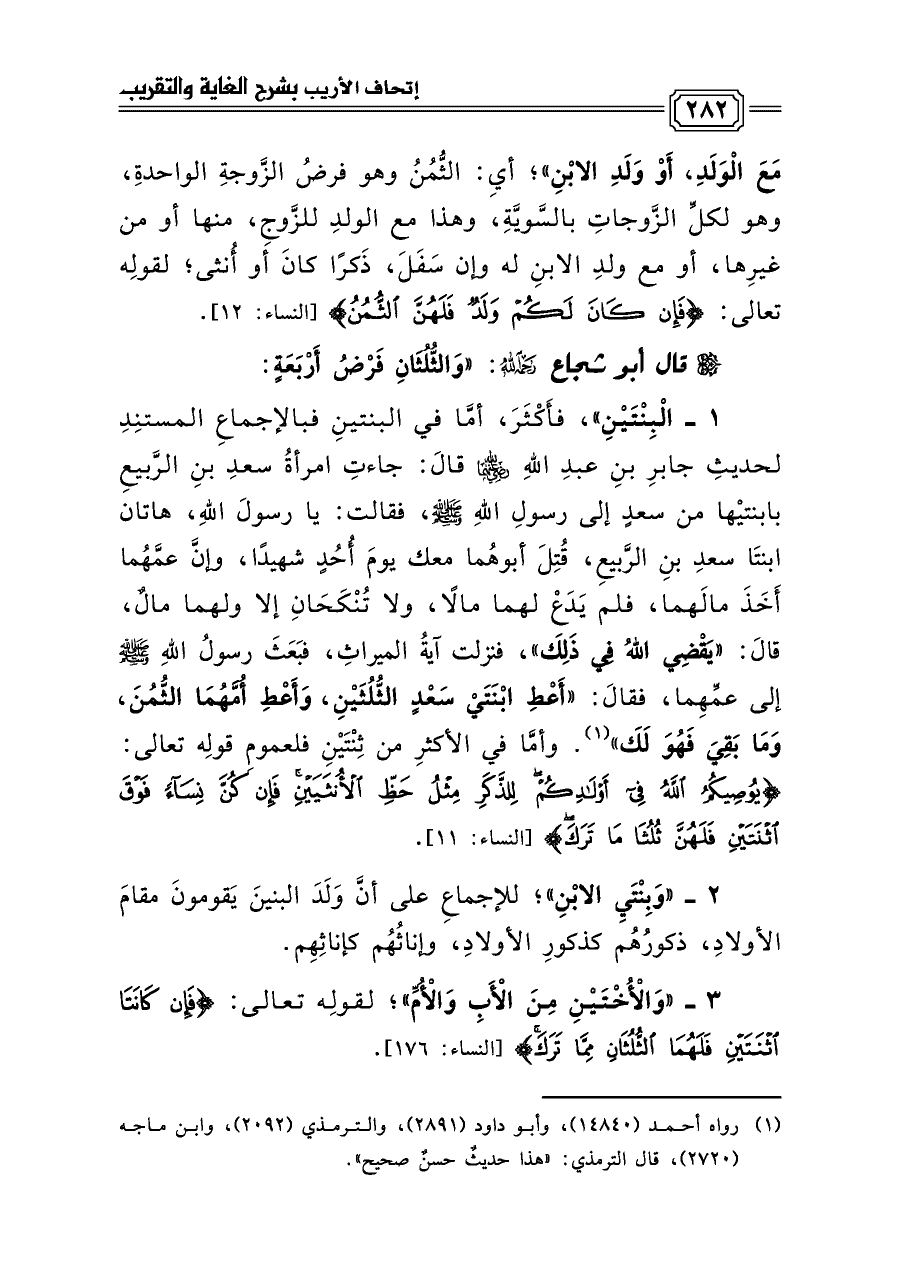 إتحاف الأريب بشرح الغاية والتقريب
٢٨٢
مَعَ الْوَلَدِ، أَوْ وَلَدِ الابْنِ»؛ أي: الثُّمُنُ وهو فرضُ الزَّوجةِ الواحدةِ،
وهو لكلِّ الزَّوجاتِ بالسَّويَّةِ، وهذا مع الولدِ للزَّوجِ، منها أو من
غيرِها، أو مع ولدِ الابنِ له وإن سَفَلَ، ذَكرًا كانَ أو أُنثى؛ لقولِه
تعالى: ﴿فَإِن كَانَ لَكُمْ وَلَدٌ فَلَهُنَّ ٱلثُّمُنُ﴾ [النساء: ١٢].
قال أبو شجاع رَحِمَهُ اللهُ: «وَالثُّلُثَانِ فَرْضُ أَرْبَعَةٍ:
١ ـ الْبِنْتَيْنِ»، فأَكْثَرَ، أمَّا في البنتينِ فبالإجماعِ المستنِدِ
لحديثِ جابرِ بنِ عبدِ اللهِ رضي الله عنهما قالَ: جاءتِ امرأةُ سعدِ بنِ الرَّبيعِ
بابنتيْها من سعدٍ إلى رسولِ اللهِ ﷺ، فقالت: يا رسولَ اللهِ، هاتان
ابنتَا سعدِ بنِ الرَّبيعِ، قُتِلَ أبوهُما معك يومَ أُحُدٍ شهيدًا، وإنَّ عمَّهُما
أَخَذَ مالَهما، فلم يَدَعْ لهما مالًا، ولا تُنْكَحَانِ إلا ولهما مالٌ،
قالَ: «يَقْضِي اللهُ فِي ذَلِكَ»، فنزلت آيةُ الميراثِ، فبَعَثَ رسولُ اللهِ ﷺ
إلى عمِّهِما، فقالَ: «أَعْطِ ابْنَتَيْ سَعْدٍ الثُّلُثَيْنِ، وَأَعْطِ أُمَّهُمَا الثُّمُنَ،
وَمَا بَقِيَ فَهُوَ لَكَ»(١). وأمَّا في الأكثرِ من ثِنْتَيْنِ فلعمومِ قولِه تعالى:
﴿يُوصِيكُمُ ٱللَّهُ فِىٓ أَوْلَٰدِكُمْ ۖ لِلذَّكَرِ مِثْلُ حَظِّ ٱلْأُنثَيَيْنِ ۚ فَإِن كُنَّ نِسَآءً فَوْقَ
ٱثْنَتَيْنِ فَلَهُنَّ ثُلُثَا مَا تَرَكَ ۖ﴾ [النساء: ١١].
٢ ـ «وَبِنْتَيِ الابْنِ»؛ للإجماعِ على أنَّ وَلَدَ البنينَ يَقومونَ مقامَ
الأولادِ، ذكورُهُم كذكورِ الأولادِ، وإناثُهُم كإناثِهِم.
٣ ـ «وَالْأُخْتَيْنِ مِنَ الْأَبِ وَالْأُمِّ»؛ لقولِه تعالى: ﴿فَإِن كَانَتَا
ٱثْنَتَيْنِ فَلَهُمَا ٱلثُّلُثَانِ مِمَّا تَرَكَ ۚ﴾ [النساء: ١٧٦].
(١) رواه أحمد (١٤٨٤٠)، وأبو داود (٢٨٩١)، والترمذي (٢٠٩٢)، وابن ماجه
(٢٧٢٠)، قال الترمذي: «هذا حديثٌ حسنٌ صحيح».